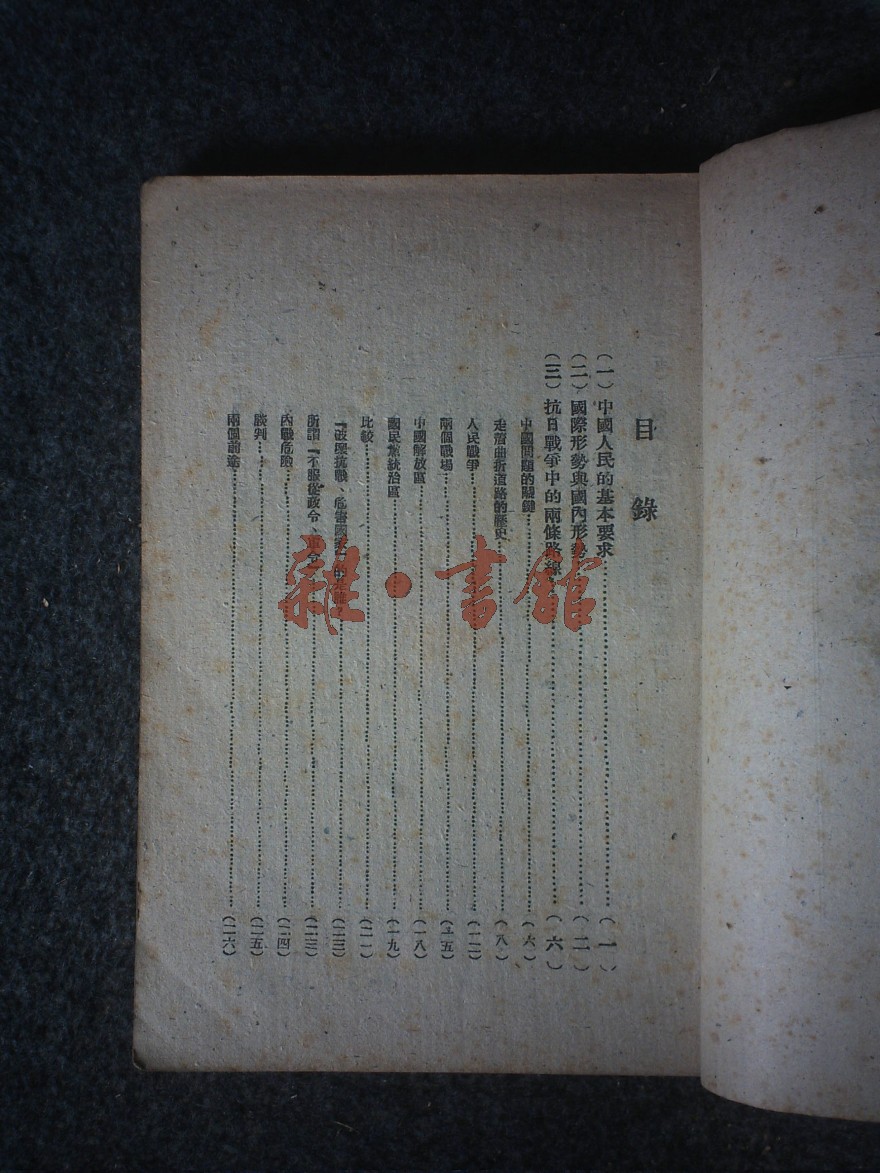 目錄
(一)中國人民的基本要求……(一)
(二)國際形勢與國內形勢……(二)
(三)抗日戰爭中的兩條路線……(六)
中國問題的關鍵……(六)
走着曲折道路的歷史……(八)
人民戰爭……(一二)
兩個戰場……(一五)
中國解放區……(一八)
國民黨統治區……(一九)
比較……(二一)
『破壞抗戰、危害國家』的是誰?……(二三)
所謂『不服從政令、軍令』……(二三)
內戰危險……(二四)
談判……(二五)
兩個前途……(二六)
雜·書館